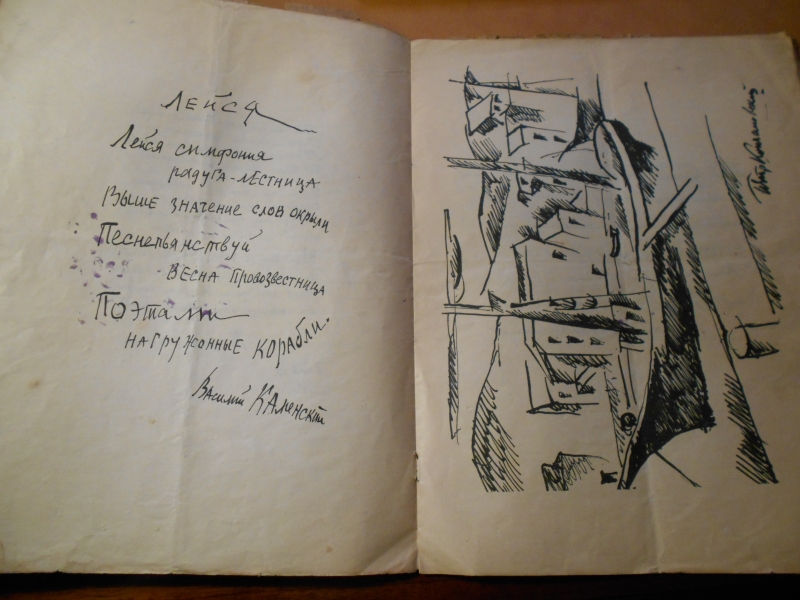 ЛЕЙСЯ
Лейся симфония
радуга-лестница
Выше значение слов окрыли
Песнепьянствуй
весна провозвестница
Поэтами
нагружонные корабли.
Василий Каменский